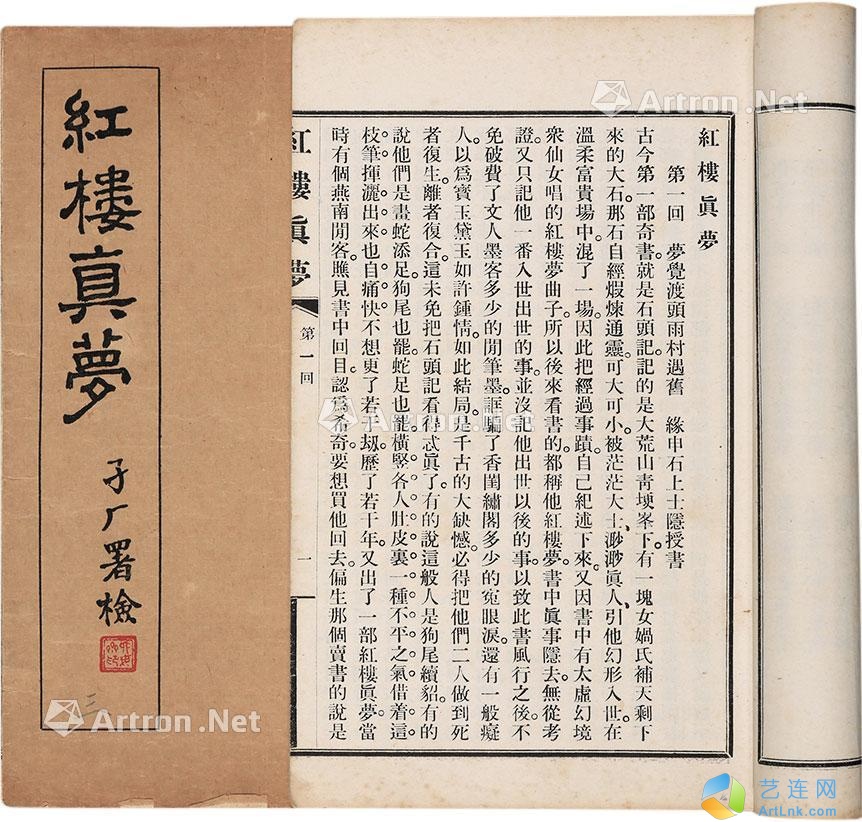 紅樓真夢
孑厂署檢
三
紅樓眞夢
第一回　夢覺渡頭雨村遇舊　緣申石上士隱授書
古今第一部奇書就是石頭記記的是大荒山青埂峯下。有一塊女媧氏補天剩下
來的大石。那石自經煆煉通靈。可大可小。被茫茫大士、渺渺眞人、引他幻形入世。在
溫柔富貴場中。混了一場。因此把經過事蹟。自己紀述下來。又因書中有太虛幻境
衆仙女唱的紅樓夢曲子。所以後來看書的。都稱他紅樓夢。書中眞事隱去。無從考
證。又只記他一番入世出世的事。並沒記他出世以後的事。以致此書風行之後。不
免破費了文人墨客多少的閒筆墨。誆騙了香閨繡閣多少的寃眼淚。還有一般癡
人。以爲寶玉黛玉如許鍾情。如此結局。是千古的大缺憾。必得把他們二人做到死
者復生。離者復合。這未免把石頭記看得忒眞了。有的說這般人是狗尾續貂。有的
說他們是畫蛇添足。狗尾也罷。蛇足也罷。橫竪各人肚皮裏一種不平之氣。借着這
枝筆揮灑出來。也自痛快。不想更了若干劫。歷了若干年。又出了一部紅樓眞夢。當
時有個燕南閒客。瞧見書中回目。認爲希奇。要想買他回去。偏生那個賣書的說是
紅樓眞夢
第一回
一
Artron.Net
Artron.Net
Artron.Net
Artron.Net
艺连网
ArtLnk.com